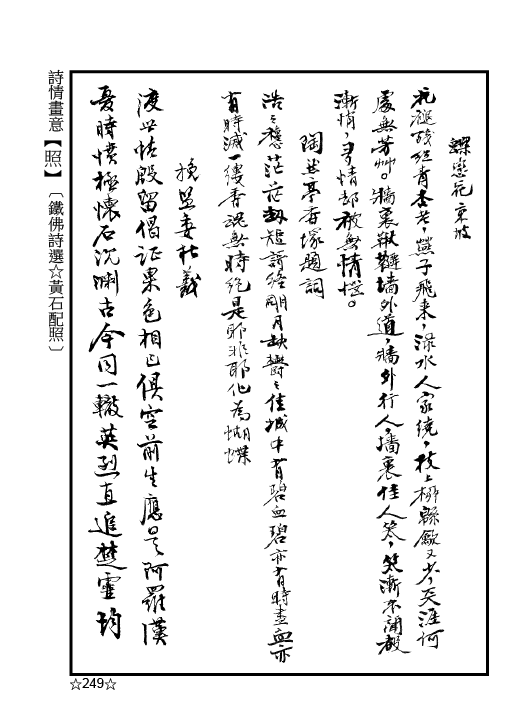 蝶戀花 東坡
花褪殘紅青杏老，燕子飛來，淥水人家繞，枝上柳緜歇又少，天涯何
處無芳艸。牆裏鞦韆墻外道，牆外行人，墻裏佳人笑，笑漸不聞聲
漸悄，多情却被無情惱。
陶然亭香塚題詞
浩〻愁茫茫劫短謌終明月缺鬱〻佳城中有碧血碧亦有時盡血亦
有時滅一縷香魂無時絕是耶非耶化為蝴蝶
挽盟妻杜義
渡世留倡証果色相已俱空前生應是阿羅漢
憂時憤極懷石沉淵古今同一轍英烈直追楚靈均
詩情畫意【照】〔鐵佛詩選☆黃石配照〕
☆249☆